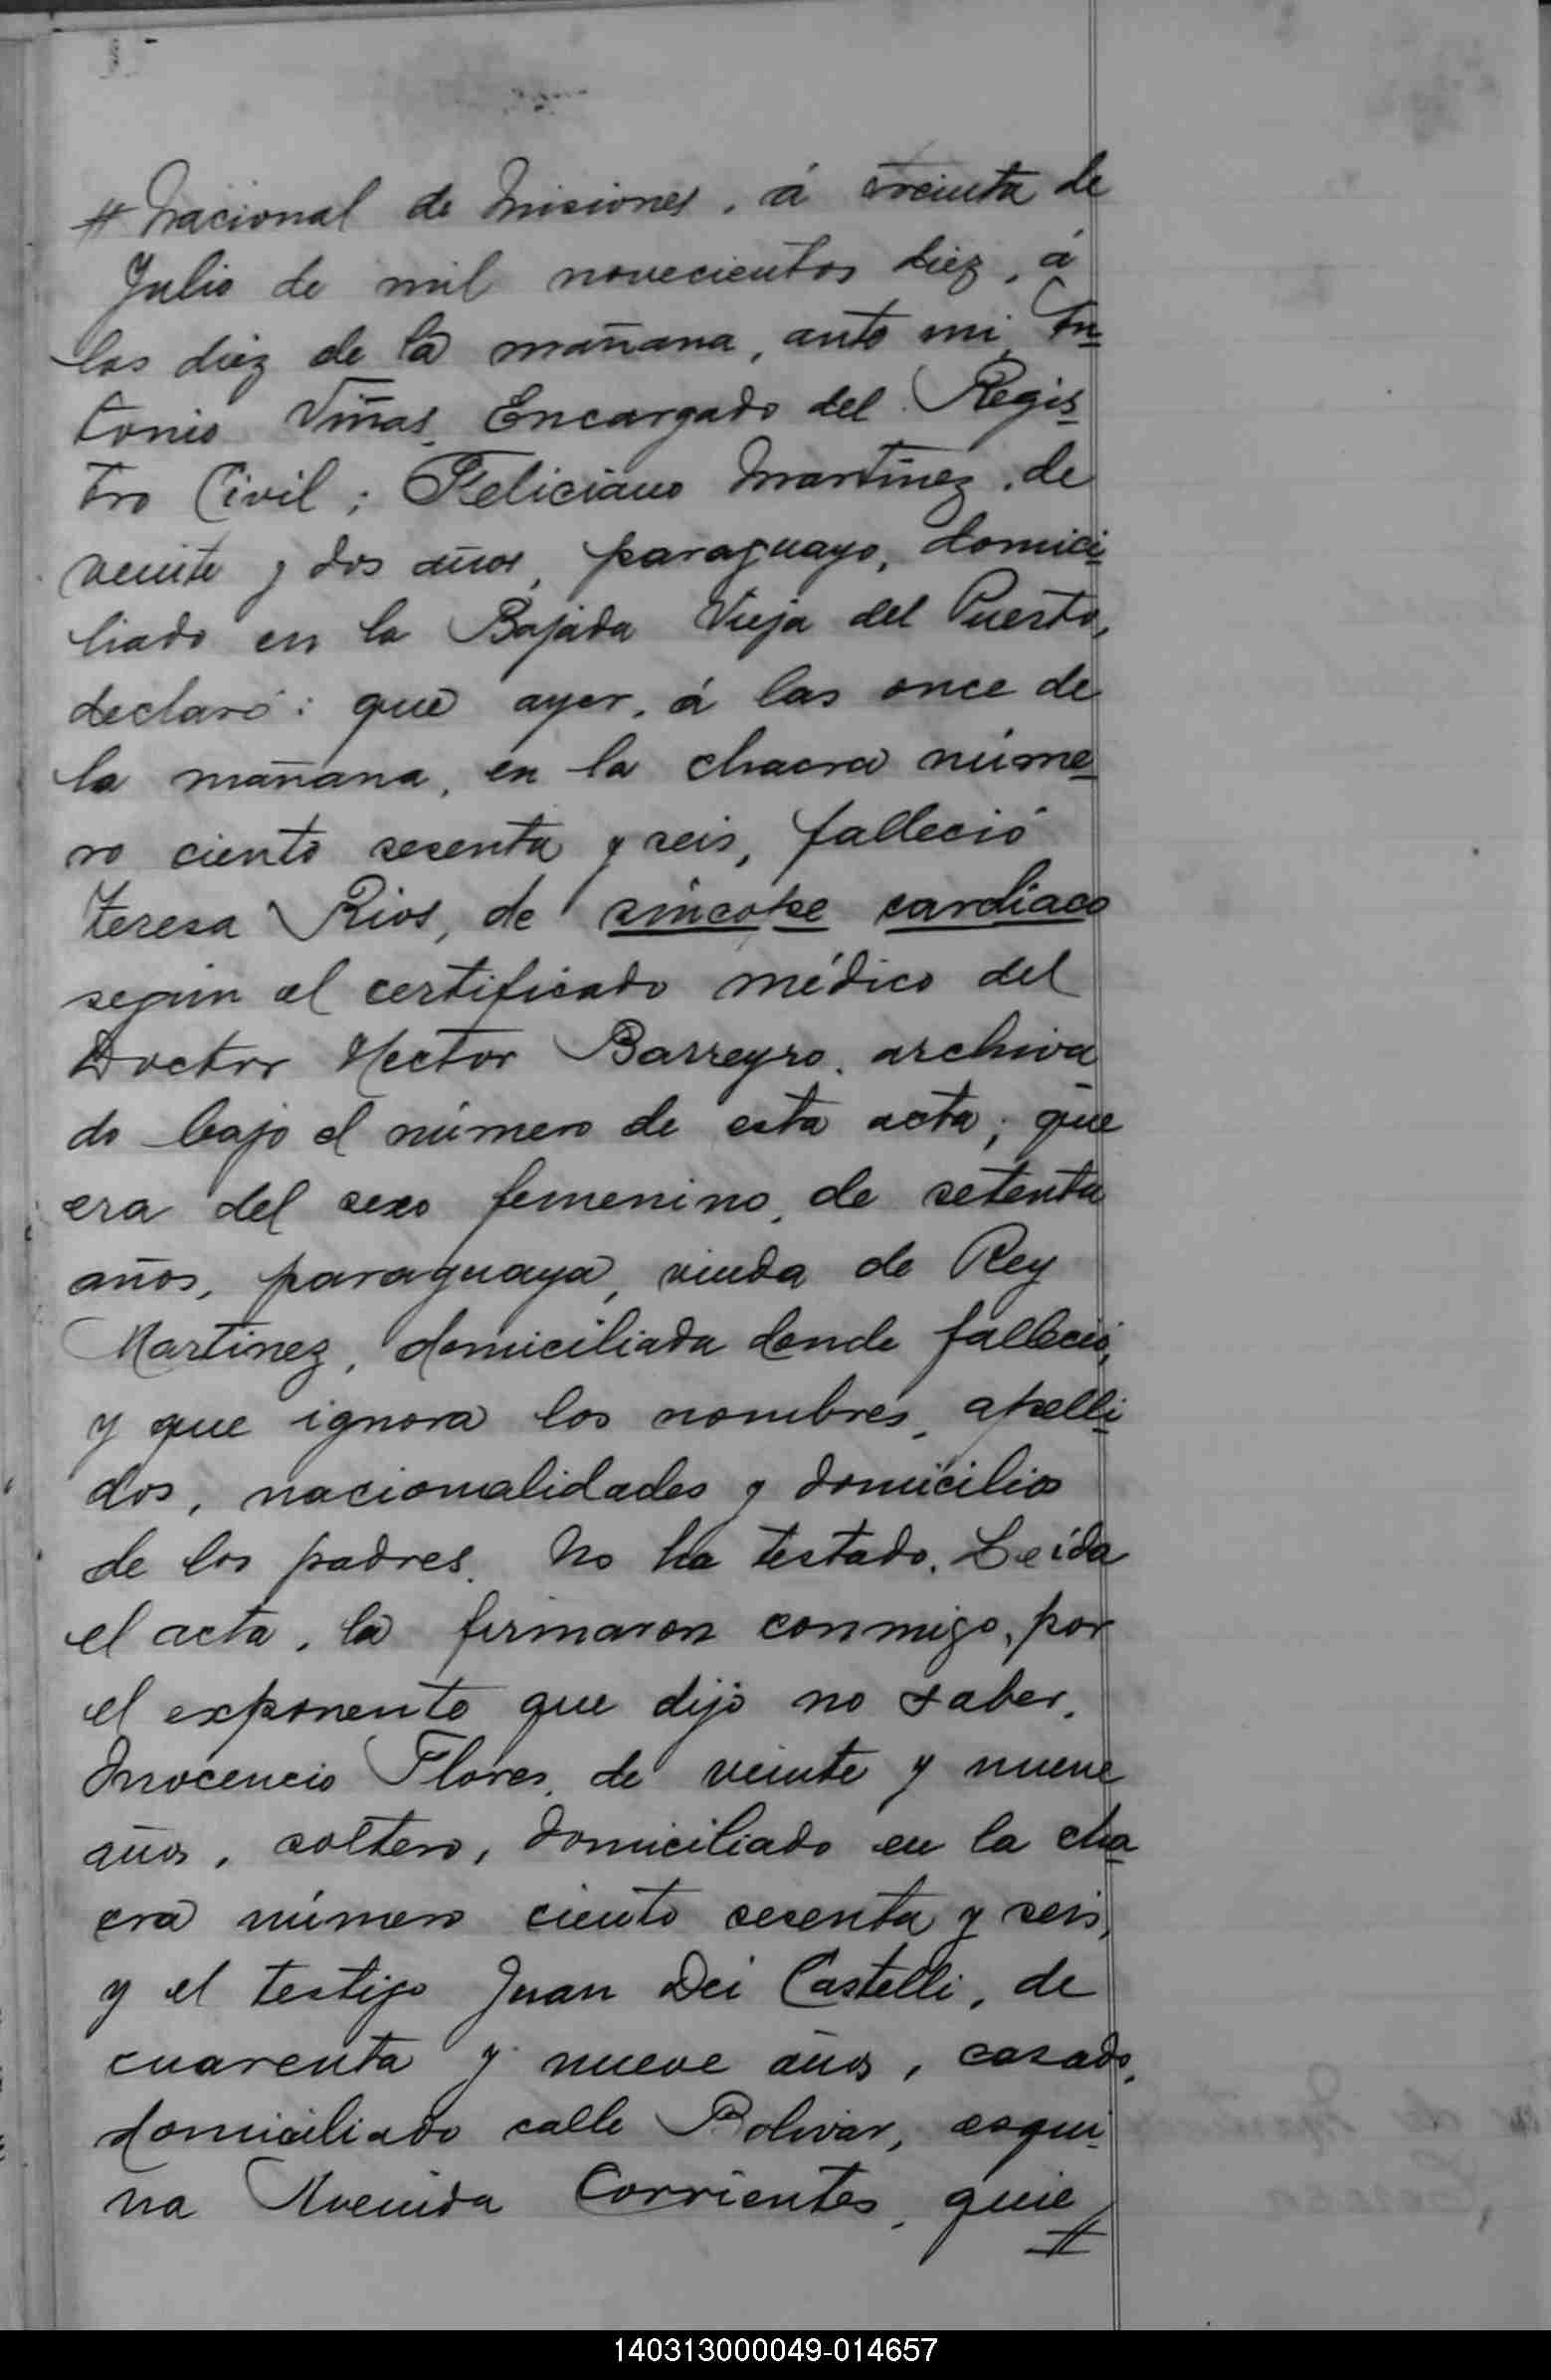 # Nacional de Misiones, á treinta de
Julio de mil novecientos diez, á
las diez de la mañana, ante mi, An-
tonio Viñas, Encargado del Regis-
tro Civil; Feliciano Martínez, de
veinte y dos años, paraguayo, domici-
liado en la Bajada Vieja del Puerto,
declaró: que ayer, á las once de
la mañana, en la chacra núme-
ro ciento sesenta y seis, falleció
Teresa Rios, de síncope cardíaco
según el certificado médico del
Doctor Hector Barreyro, archiva-
do bajo el número de esta acta; que
era del sexo femenino, de setenta
años, paraguaya, viuda de Rey
Martinez, domiciliada donde falleció,
y que ignora los nombres, apelli-
dos, nacionalidades y domicilios
de los padres. No ha testado. Leída
el acta, la firmaron conmigo, por
el exponente que dijo no saber,
Inocencio Flores, de veinte y nueve
años, soltero, domiciliado en la cha-
cra número ciento sesenta y seis,
y el testigo Juan Dei Castelli, de
cuarenta y nueve años, casado,
domiciliado calle Bolivar, esqui-
na Avenida Corrientes, quie
#
140313000049-014657